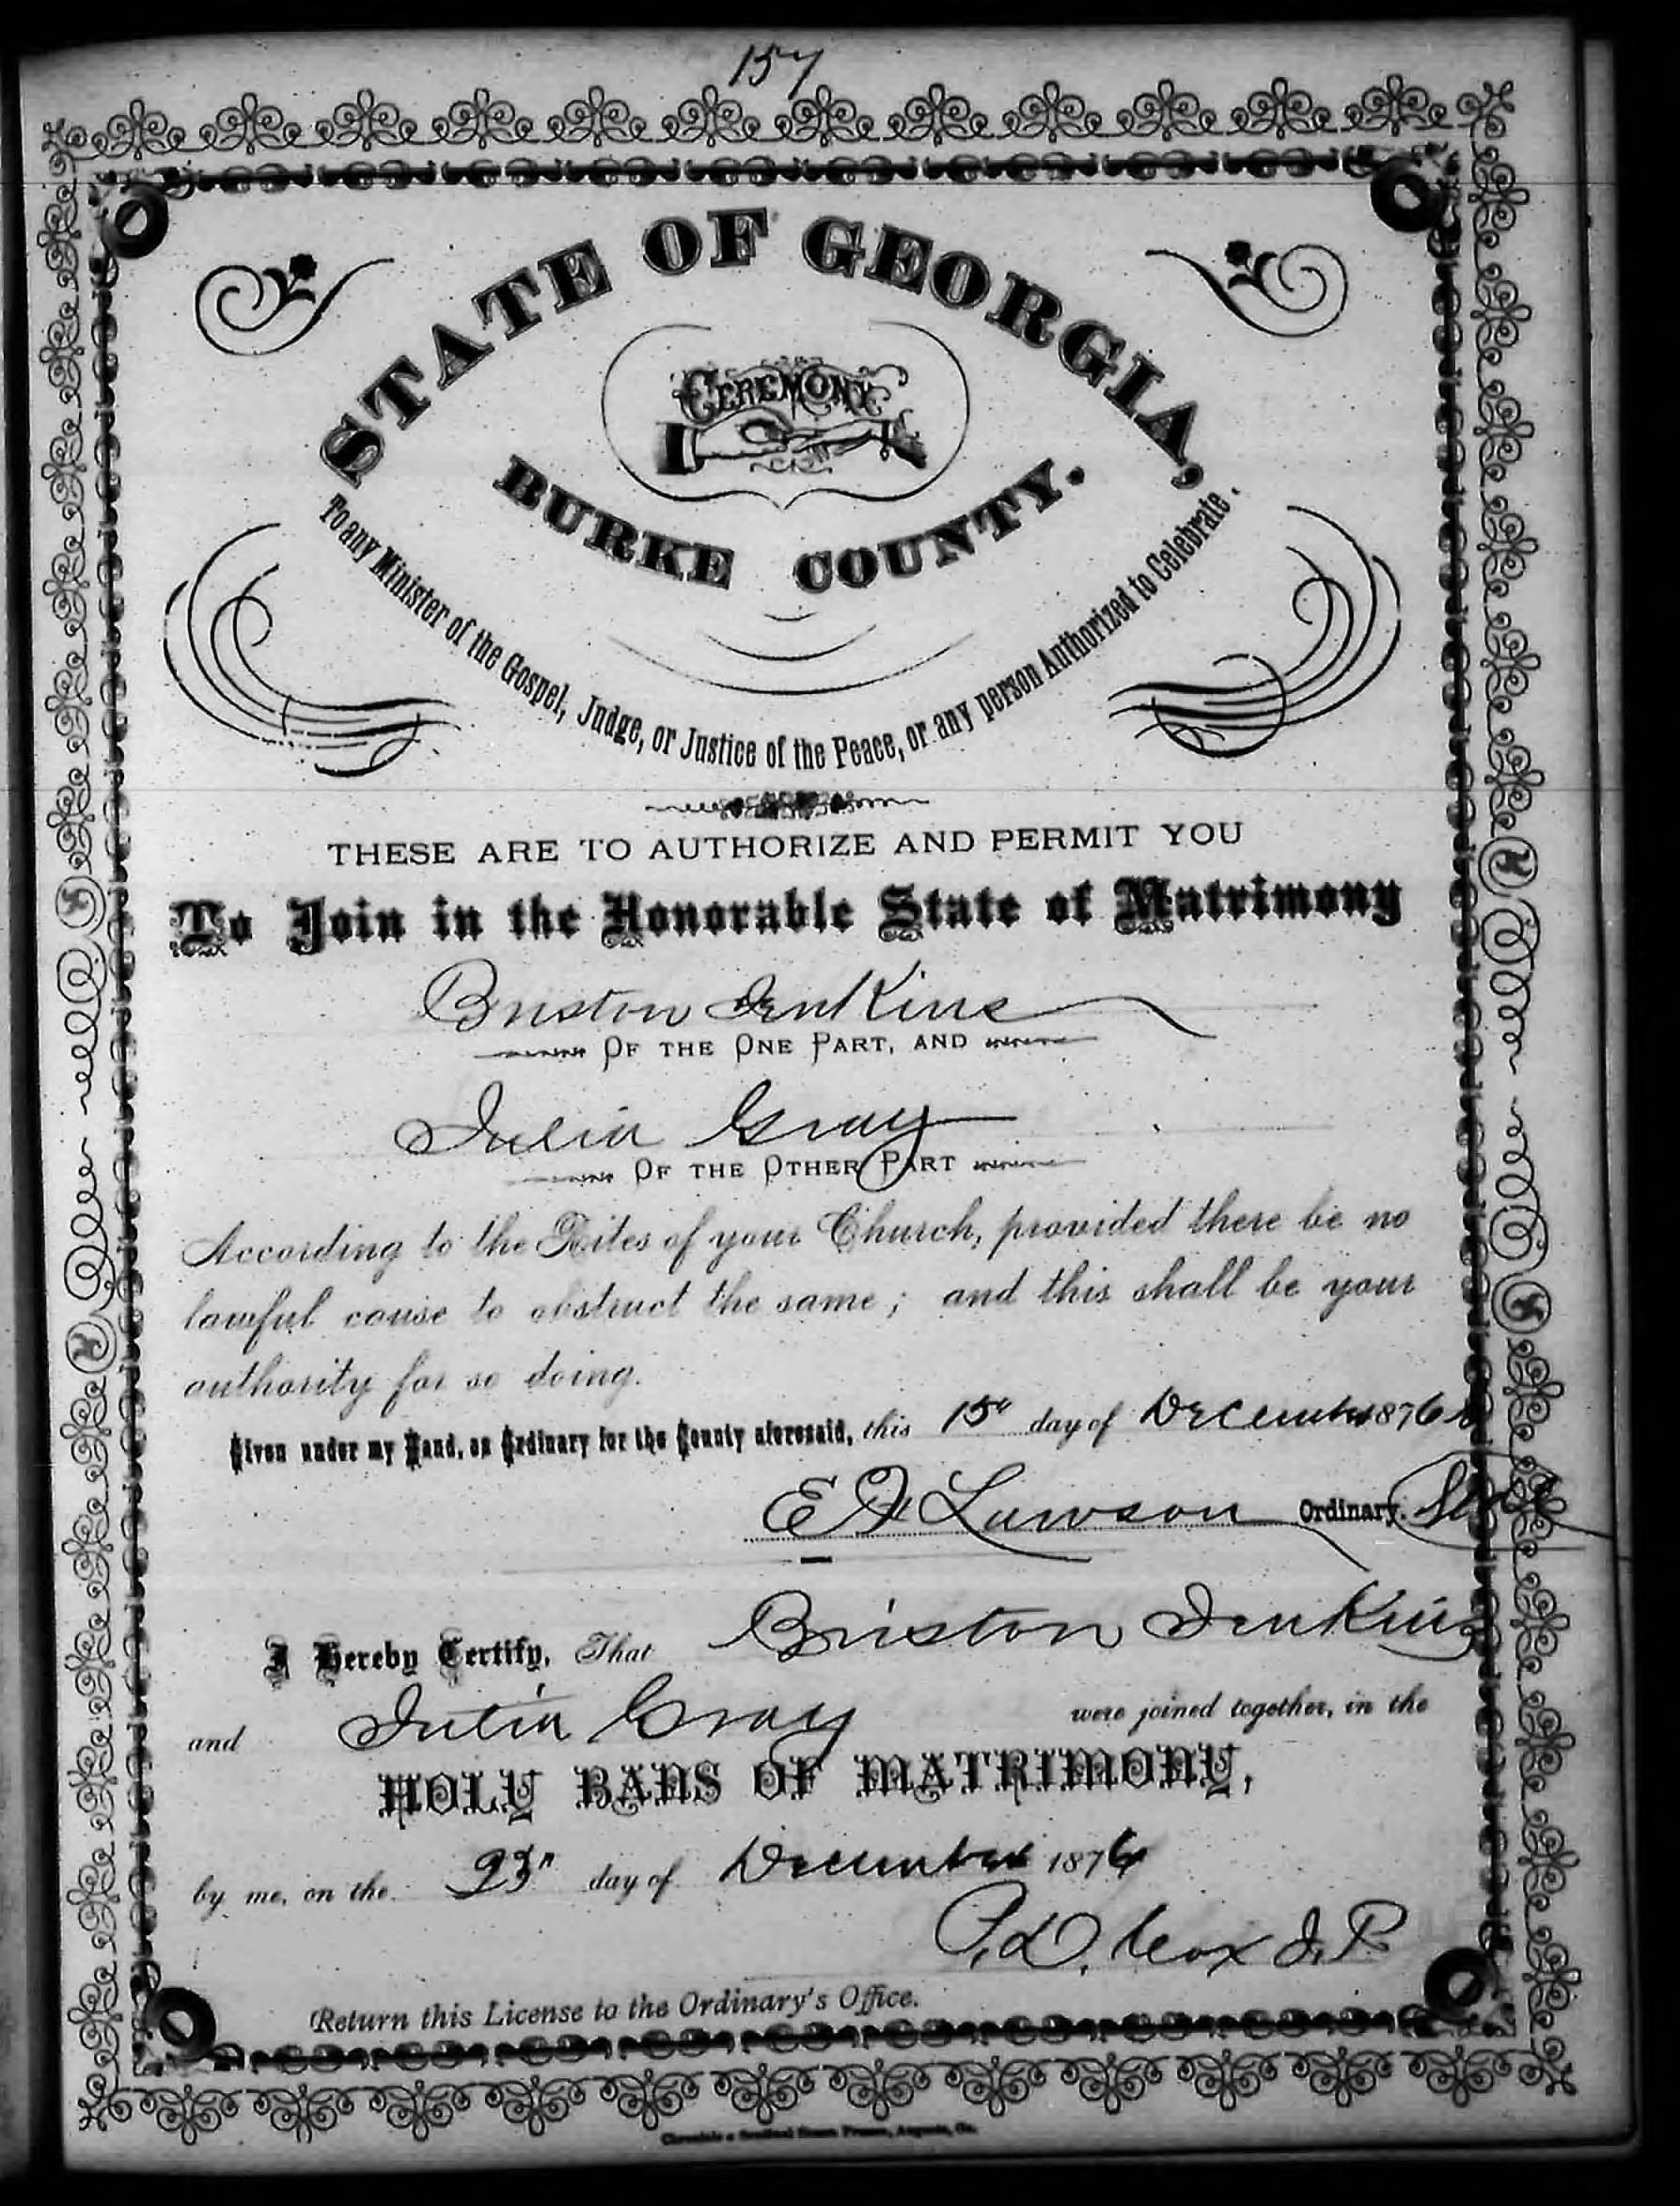 157
STATE OF GEORGIA,
CEREMONY
BURKE COUNTY.
To any Minister of the Gospel, Judge, or Justice of the Peace, or any person Authorized to Celebrate.
THESE ARE TO AUTHORIZE AND PERMIT YOU
To Join in the Honorable State of Matrimony
Briston Jenkins
OF THE ONE PART, AND
Julia Gray
OF THE OTHER PART
According to the Rites of your Church, provided there be no
lawful cause to obstruct the same; and this shall be your
authority for so doing.
Given under my Hand, as Ordinary for the County aforesaid, this 15" day of December 1876
E F Lawson Ordinary.
I Hereby Certify, That Briston Jenkins
and Julia Gray were joined together, in the
HOLY BANS OF MATRIMONY,
by me, on the 23" day of December 1876
P. D. Cox J. P.
Return this License to the Ordinary's Office.
Chronicle & Sentinel Steam Presses, Augusta, Ga.